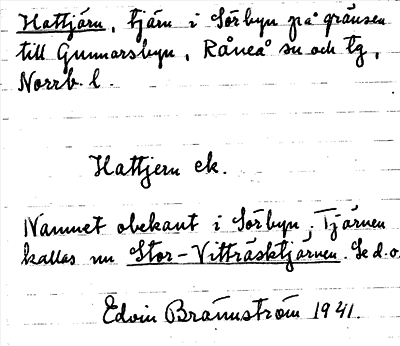 Hattjärn, tjärn i Sörbyn på gränsen
till Gunnarsbyn, Råneå sn och tg,
Norrb. l.
Hattjern ek.
Namnet obekant i Sörbyn. Tjärnen
kallas nu Stor-Vitträsktjärnen. Se d.o.
Edvin Brännström 1941.